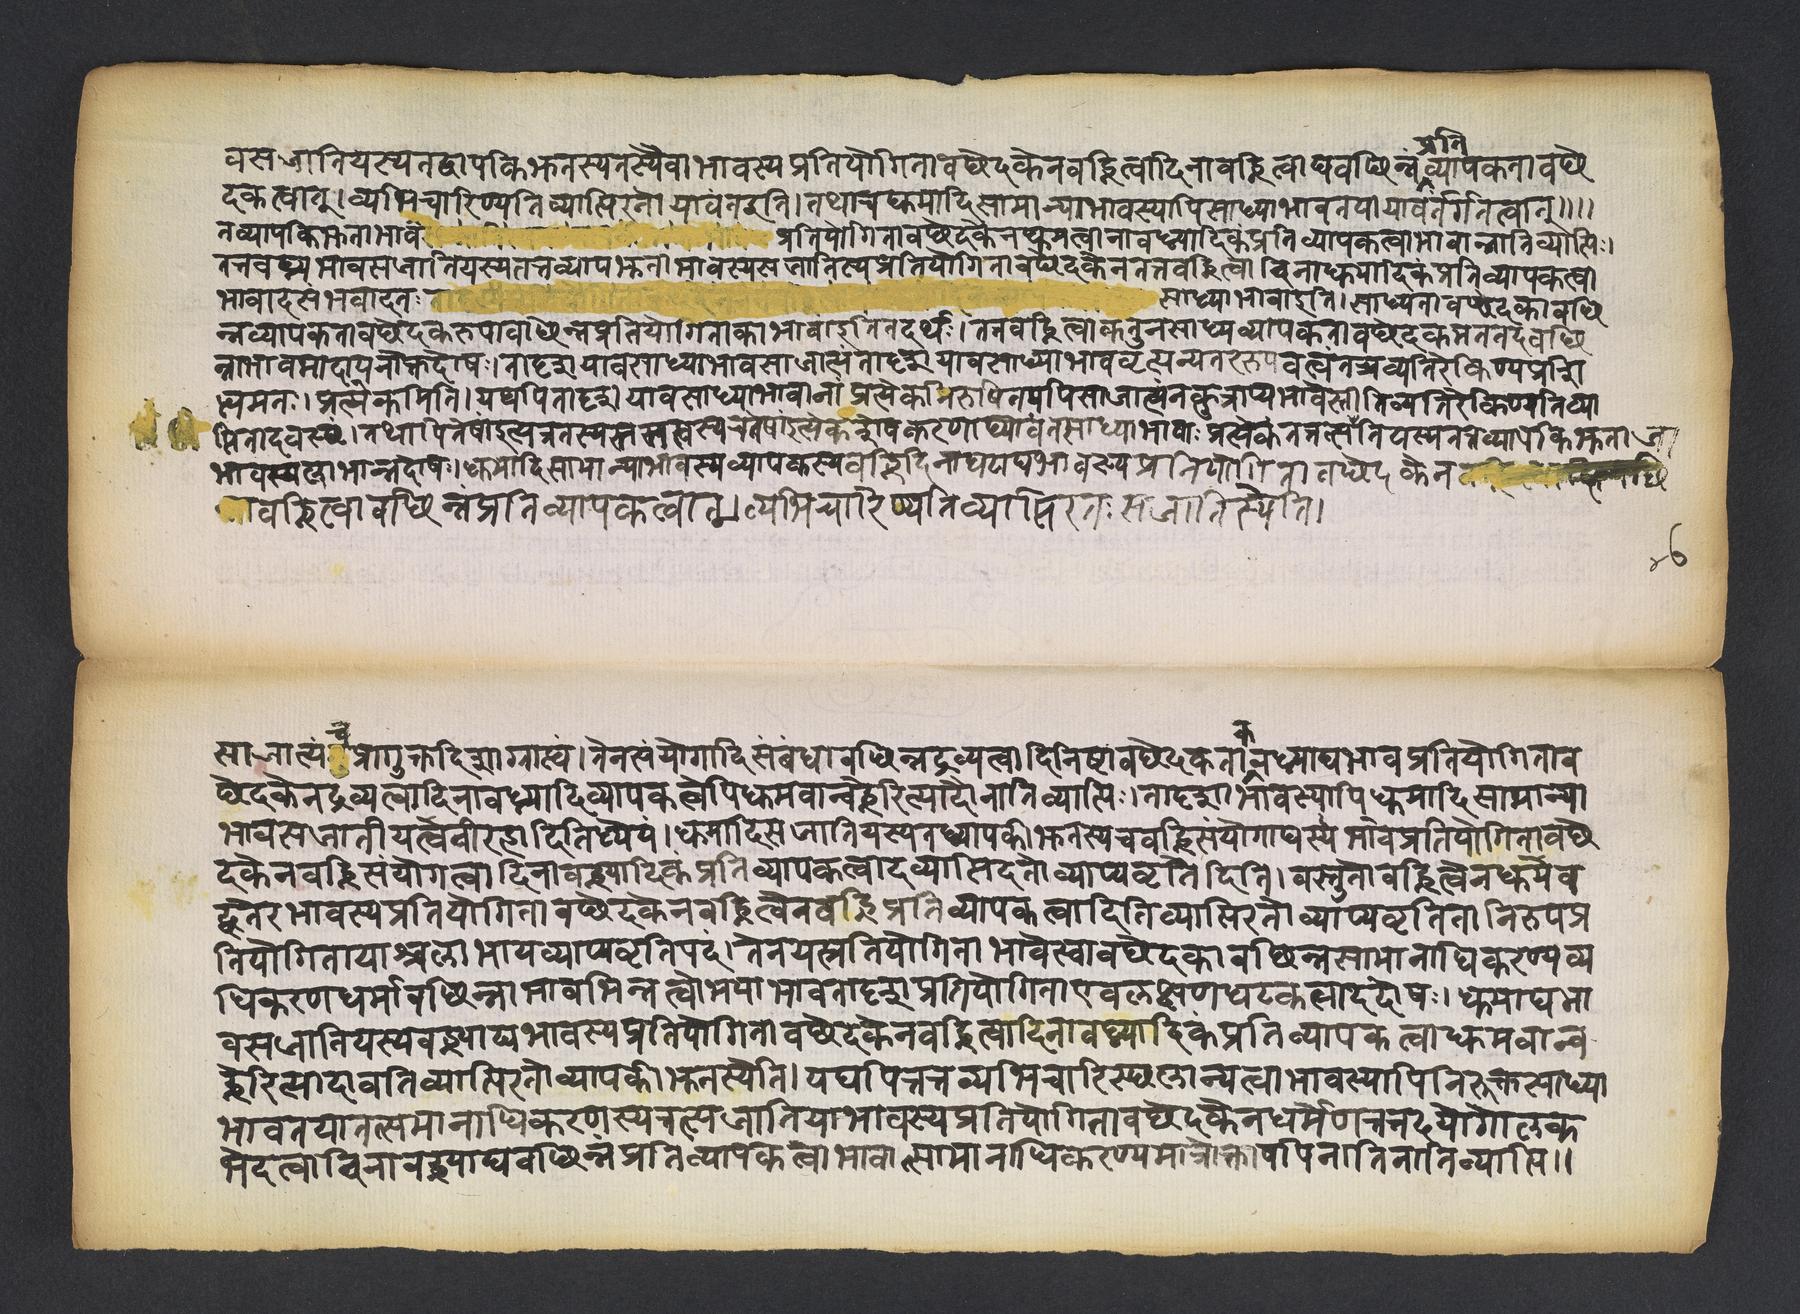 वसजातियस्यतद्वापकिभूतस्यतस्यैवाभावस्य प्रतियोगितावछेदकेनवह्नित्वादिनावह्नित्वाद्यवछिन्नं प्रति व्यापकतावछे
दकत्वात्। व्यभिचारिण्यतिव्याप्तिरतो यावंतइति। तथाचधूमादिसामान्याभावस्यापिसाध्याभावतयायावंतर्गतत्वात्॥॥
तव्यापकिभूताभावं प्रतियोगितावछेदकेनधूमत्वानावध्यादिकंप्रति व्यापकत्वाभावान्नातिव्याप्तिः।
तत्रवह्न्यभावसजातियस्यतत्रव्यापभूताभावस्यसजातिस्यप्रतियोगितावछेदकेनतत्रवह्नित्वादिनाधूमादिकंप्रतिव्यापकत्वा
भावादसंभवादतः साध्याभावाइति। साध्यतावछेदकावछि
न्नव्यापकतावछेदकरूपावछिन्नप्रतियोगिताकाभावाइतितदर्थः। तत्रवह्नित्वाकंतुनसाध्यव्यापकतावछेदकमतनतदवछि
न्नाभावमादायनोक्तदोषः। तादृशयावसाध्याभावसाजात्यंतादृशयावसाध्याभाववृत्यन्यतररूपवत्वंतच्चव्यतिरेकिण्यप्रसि
त्यमतः। प्रत्येकमिति। यद्यपितादृशयावसाध्याभावानां प्रत्येकनिरूपितमपिसाजात्यंनकुत्राप्यभावेस्तीतिव्यतिरेकिण्यतिव्या
प्तितादवस्थ। तथापितेषां प्रत्येकं साध्याभावाः प्रत्येकं तत्सजातियस्यतत्रव्यापकिभूता
भावस्यलाभान्नदोषः। धूमादिसामान्याभावस्यव्यापकस्यवह्निदिनाघटाद्यभावस्य प्रतियोगितावछेदकेन
वह्नित्वावछिन्नंप्रतिव्यापकत्वात्। व्यभिचारिण्यतिव्याप्तिरतः सजातिस्येति।
४६
साजात्यं च प्रागुक्तदिशाग्रास्यं। तेनसंयोगादिसंबंधावछिन्नद्रव्यत्वादिनिष्टावछेदकताकवध्याद्यभावप्रतियोगिताव
छेदकेनद्रव्यत्वादिनावध्यादिव्यापकत्वेपिधूमवान्वह्नेरित्यादौनातिव्याप्तिः। तादृशाभावस्यापिधूमादिसामान्या
भावसजातीयत्वेवीरहादितिध्येयं। धूमादिसजातियस्यतध्यापकीभूतस्यचवह्निसंयोगाद्यस्य भावप्रतियोगितावछे
दकेनवह्निसंयोगत्वादिनावह्न्यादिकंप्रतिव्यापकत्वादव्याप्तिदतोव्याप्यवृतिदिति। वस्तुतोवह्नित्वेनधूमेव
ह्नूतरभावस्यप्रतियोगितावछेदकेनवह्नित्वेनवह्निप्रतिव्यापकत्वादितिव्याप्तिरतोव्याप्यवृतितानिरुपप्र
तियोगितायाश्चलाभायव्याप्यवृतिपदं। तेनयत्प्रतियोगिताभावेस्वावछेदकावछिन्नसामानाधिकरण्यव्य
धिकरणधर्मावछिन्नाभावभिन्नत्वोभयाभावतादृशप्रतियोगिताएवलक्षणघटकत्वाददोषः। धूमाद्यभा
वसजातियस्यैवह्न्याद्यभावस्यप्रतियोगितावछेदकेनवह्नित्वादिनावध्यादिकंप्रतिव्यापकत्वाधूमवान्व
ह्नेरित्यादावतिव्याप्तिरतोव्यापकीभूतस्येति। यद्यपितत्रव्यभिचारिस्थलान्यत्वाभावस्यापिनिरुक्तसाध्या
भावतयातत्समानाधिकरणस्यतत्सजातियाभावस्यप्रतियोगितावछेदकेनधर्मेणतत्तदयोगोलक
भेदत्वादिनावह्न्याद्यवछिन्नंप्रतिव्यापकत्वाभावात्सामानाधिकरण्यमात्रोक्तावपिनातिव्याप्ति॥